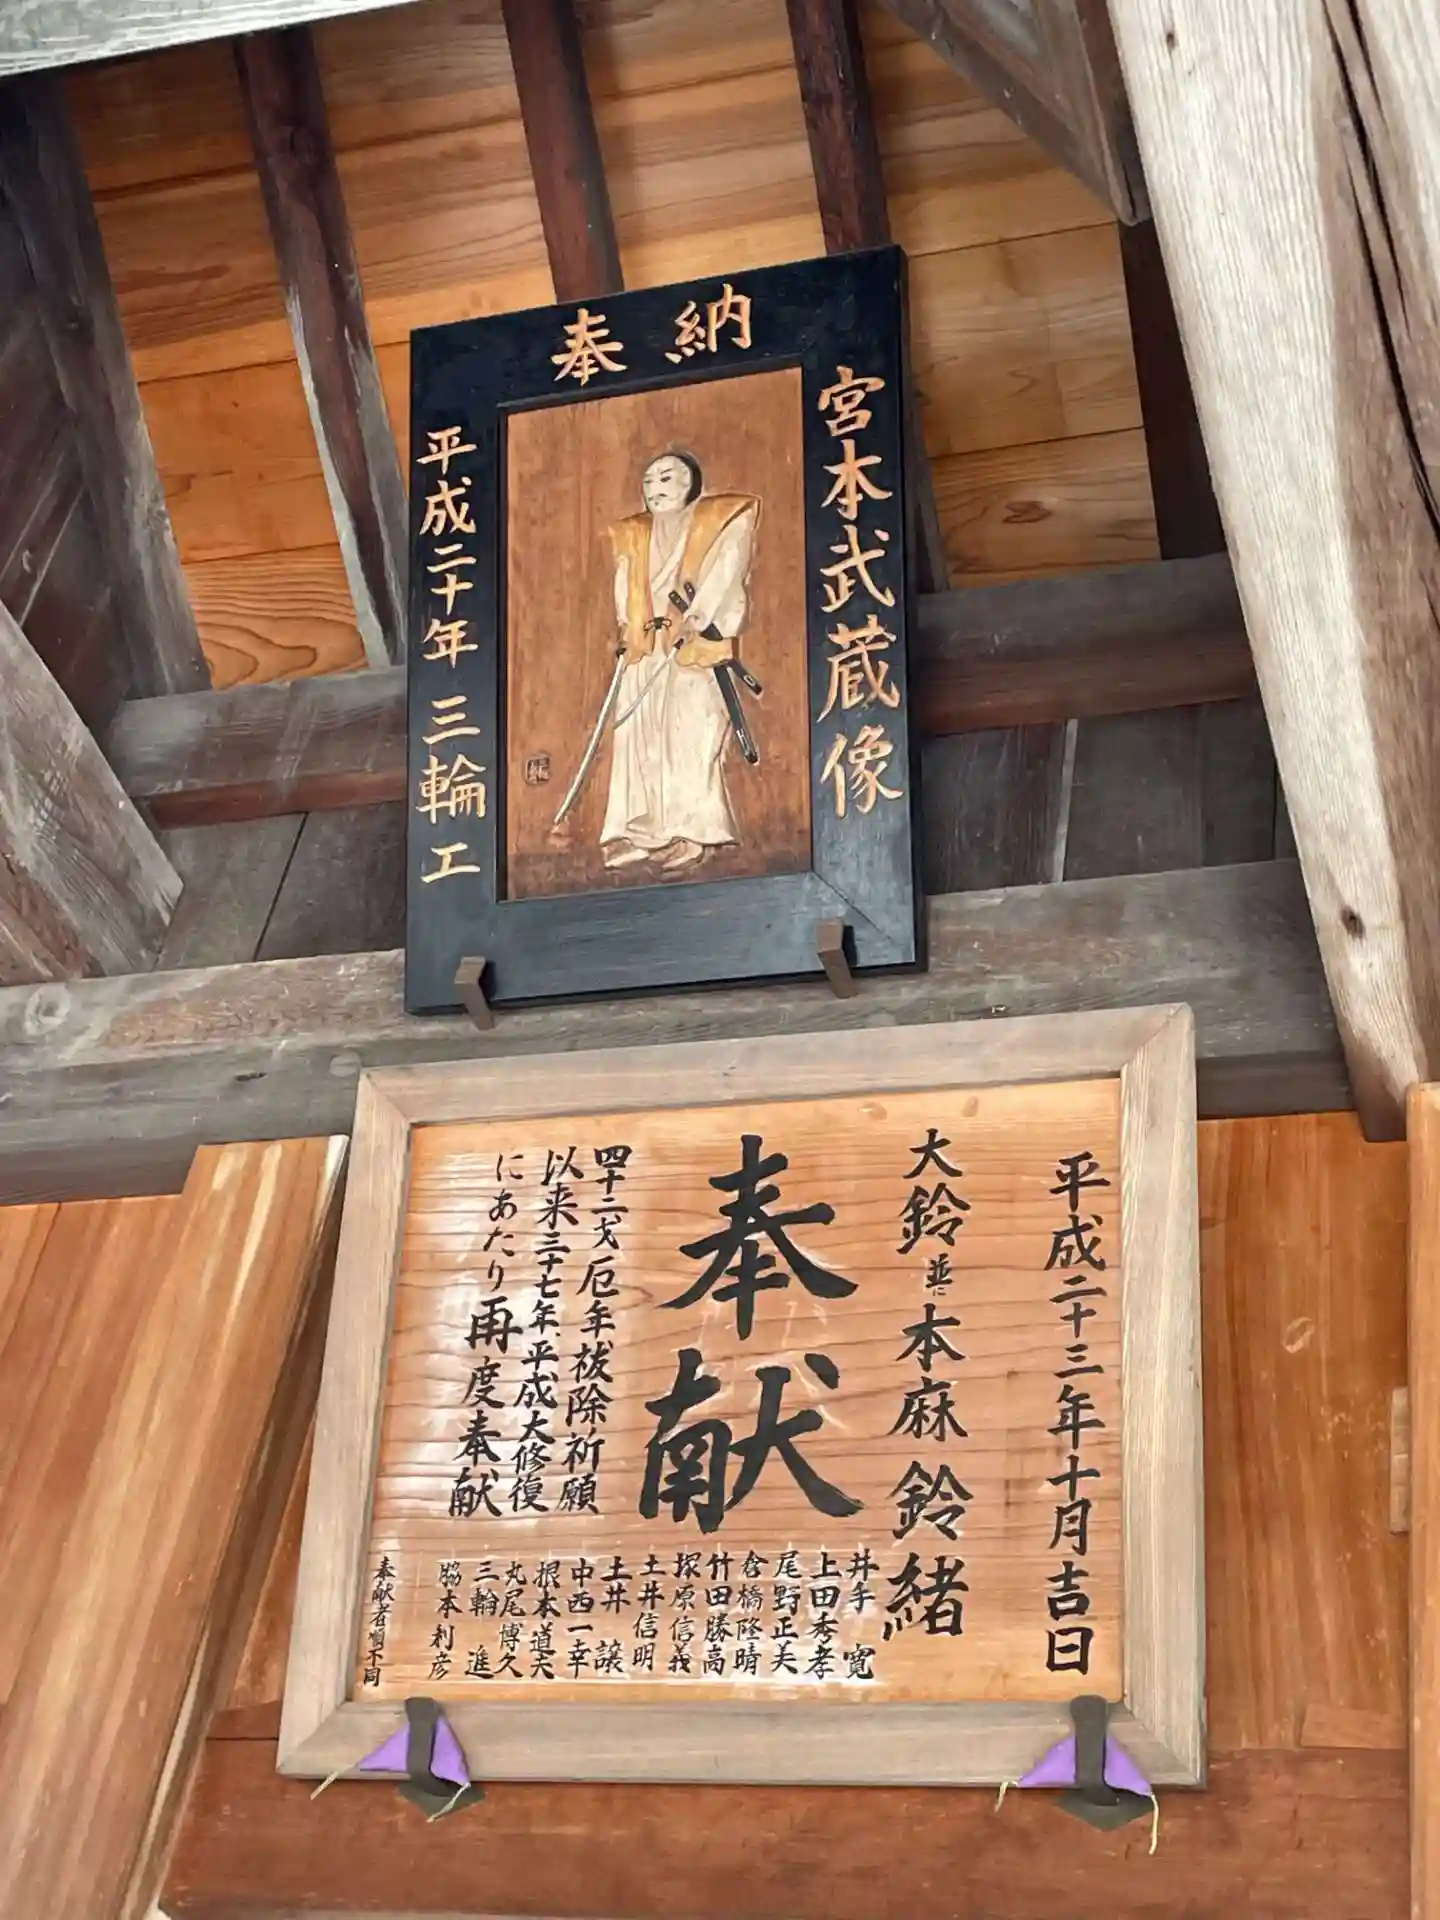 奉納
宮本武蔵像
平成二十年 三輪工
平成二十三年十月吉日
大鈴並に本麻鈴緒
奉献
四十二才厄年祓除祈願
以来三十七年、平成大修復
にあたり再度奉献
井手 寛
上田秀孝
尾野正美
倉橋隆晴
竹田勝高
塚原信義
土井信明
土井 譲
中西一幸
根本道夫
丸尾博久
三輪 進
脇本利彦
奉献者順不同